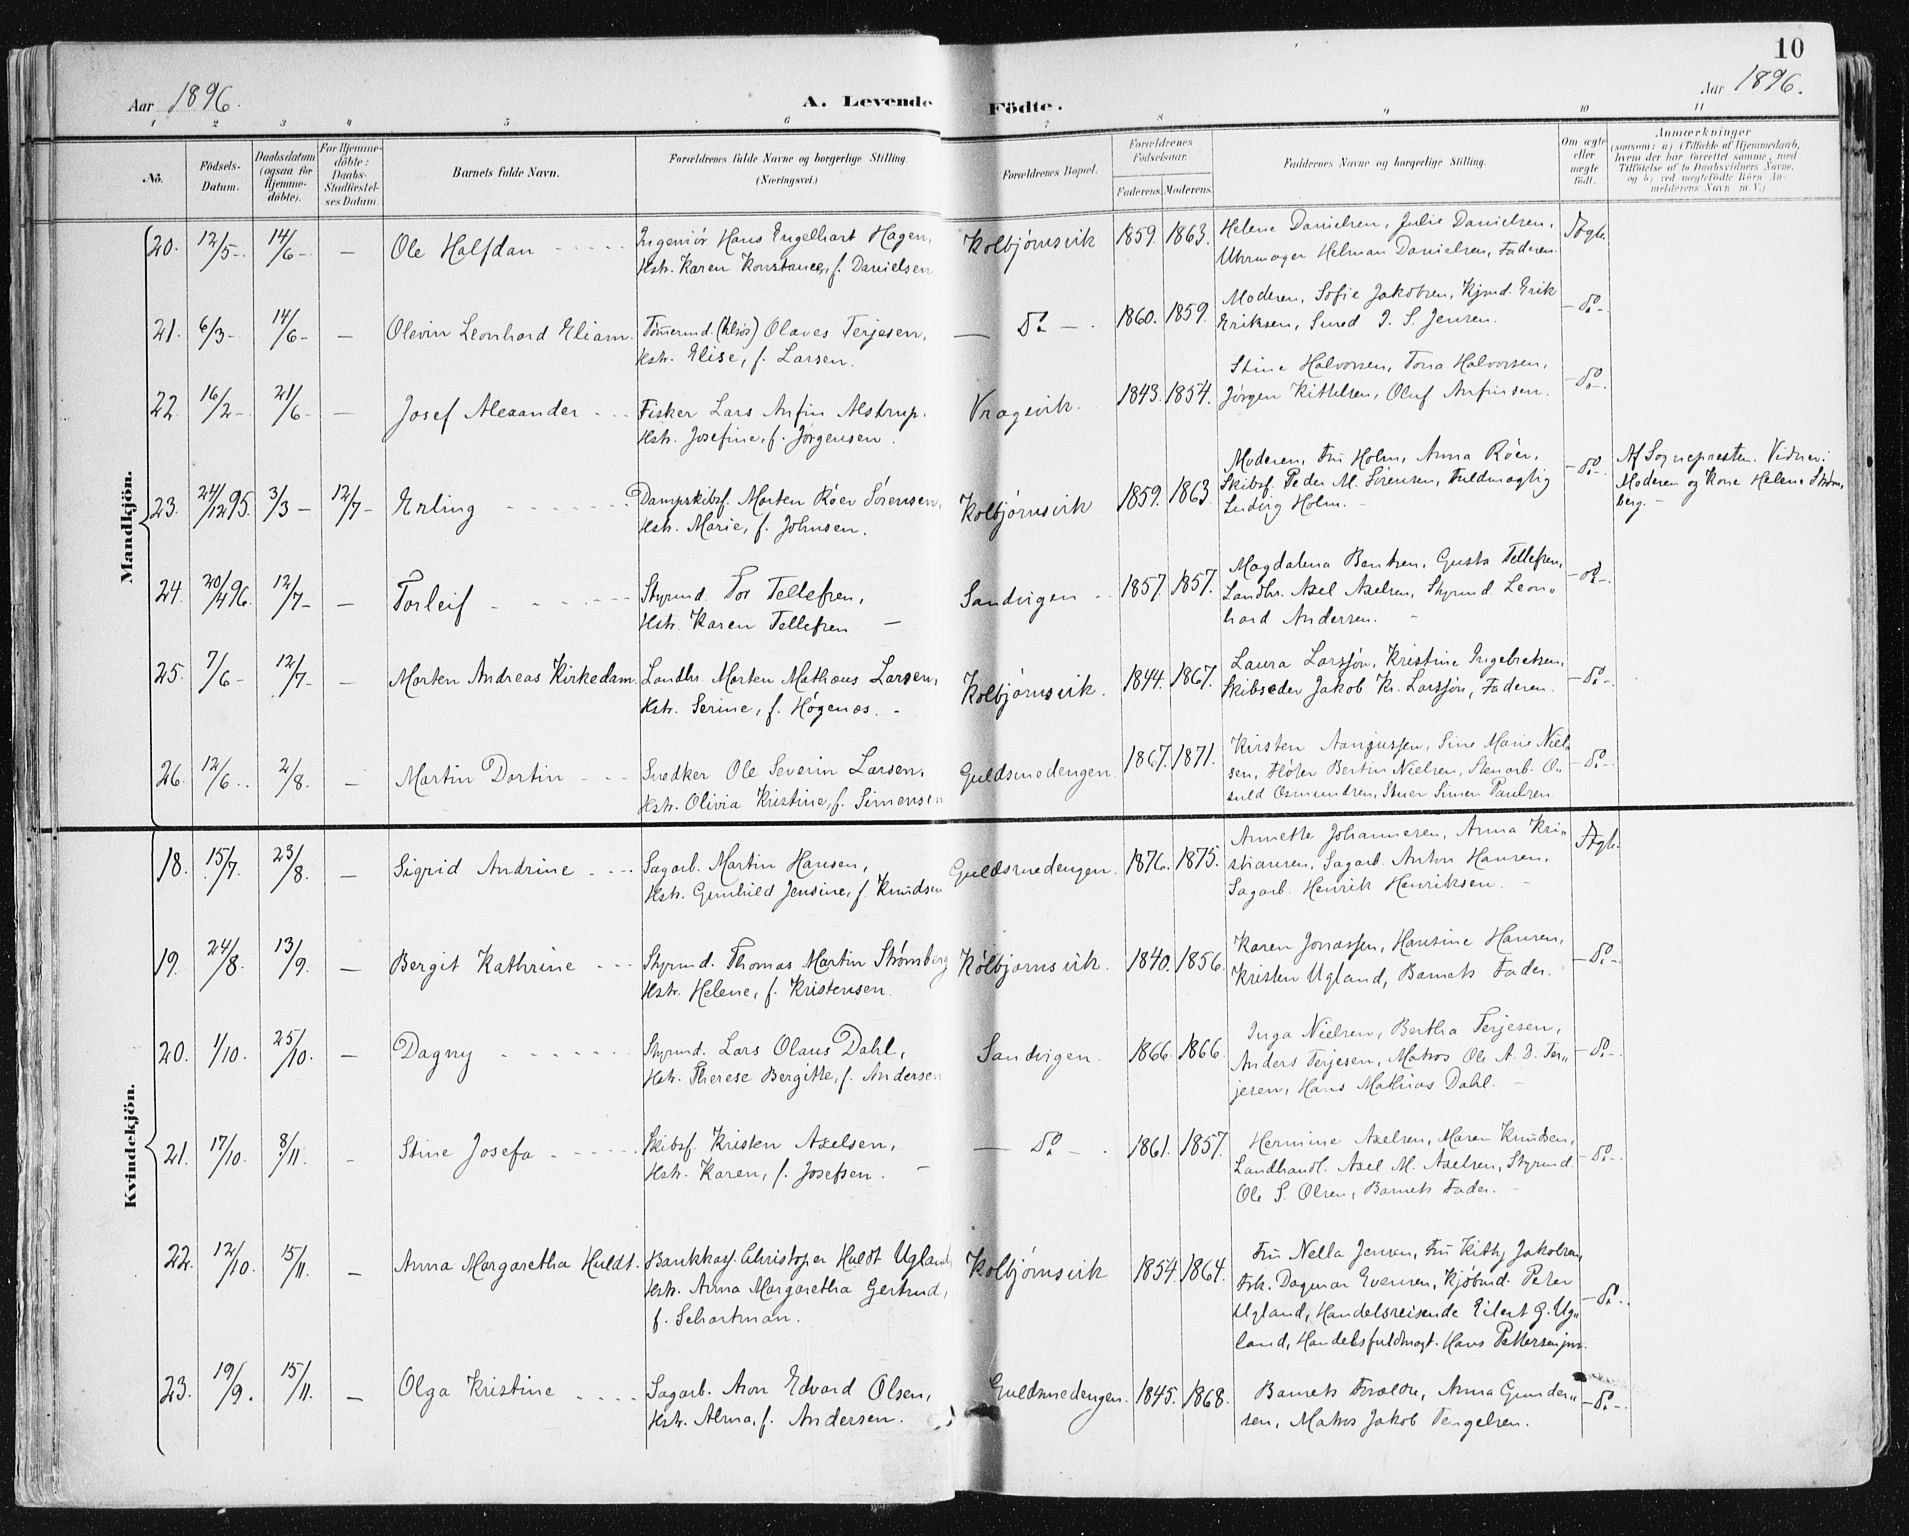 10
Aar 1896.
A. Levende Födte.
Aar 1896.
1 2 3 4 5 6 7 8 9 10 11
No.
Födsels-
Datum.
Daabsdatum
(ogsaa for
Hjemme-
döbte).
For Hjemme-
döbte:
Daabs-
Stadfæstel-
ses Datum.
Barnets fulde Navn.
Forældrenes fulde Navne og borgerlige Stilling.
(Næringsvei.)
Forældrenes Bopæl.
Forældrenes
Födselsaar.
Faderens. Moderens.
Faddernes Navne og borgerlige Stilling.
Om ægte
eller
uægte
født.
Anmærkninger
(saasom: a) i Tilfælde af Hjemmedaab,
hvem der har forrettet samme, med
Tilföielse af to Daabsvidners Navne,
og b) ved uægtefødte Börn An-
melderens Navn m. V.)
Mandkjön.
20. 12/5- 14/6- — Ole Halfdan
Ingeniör Hans Engelhart Hagen,
Hstr. Karen Konstance, f. Danielsen
Kolbjørnsvik 1859. 1863.
Helene Danielsen, Julie Danielsen,
Uhrmager Helman Danielsen, Faderen.
Ægte.
21. 6/3- 14/6- — Olevin Leonhard Eliam.
Tømmermd. Olaves Terjesen,
Hstr. Elise, f. Larsen.
— Do — . 1860. 1859.
Moderen, Sofie Jakobsen, Kjmd. Erik
Eriksen, Smed J. S. Jensen.
— Do —
22 16/2- 21/6- — Josef Alexander
Fisker Lars Anfin Alstrup.
Hstr. Josefine, f. Jørgensen.
Vragevik. 1843. 1854.
Stine Halvorsen, Tona Halvorsen,
Jørgen Kittelsen, Oluf Anfinsen.
— Do —
23. 24/12 95. 3/3 — 12/7- Erling
Dampskibsf. Morten Röer Sørensen,
Hstr. Marie, f. Johnsen.
Kolbjørnsvik 1859. 1863.
Moderen, Fru Holm, Anna Röer,
Skibsf. Peder M. Sørensen, Fuldmægtig
Ludvig Holm. —
— Do —
Af Sognepresten. Vidner:
Moderen og Kone Helene Strøm,
berg. —
24. 20/4 96. 12/7- — Torleif
Styrmd. Tor Tellefsen,
Hstr. Karen Tellefsen —
Sandvigen 1857. 1857.
Magdalena Bentsen, Gusta Tellefsen,
Landhr. Axel Axelsen, Styrmd. Leon„
hard Andersen. —
— Do —
25. 7/6- 12/7- — Morten Andreas Kirkedam.
Landhr. Morten Mathæus Larsen,
Hstr. Serine, f. Høgenæs. —
Kolbjørnsvik. 1844. 1867.
Laura Larssøn, Kristine Ingebretsen,
Skibsreder Jakob Kr. Larssøn, Faderen.
— Do —
26. 12/6.. 2/8. — Martin Dortin
Snedker Ole Severin Larsen,
Hstr. Olivia Kristine, f. Simensen
Guldsmedengen. 1867. 1871.
Kirsten Aanonsen, Sine Marie Niel„
sen, Fløter Bertin Nielsen, Stenarb. O„
suld Osmundsen, Stuer Simen Paulsen
— Do —
Kvindekjön.
18. 15/7. 23/8. — Sigrid Andrine
Sagarb. Martin Hansen,
Hstr. Gunhild Jensine, f. Knudsen
Guldsmedengen. 1876. 1875.
Annette Johannesen, Anna Kri„
stiansen, Sagarb. Anton Hansen,
Sagarb. Henrik Henriksen. —
Ægte.
19. 24/8. 13/9. — Bergit Kathrine
Styrmd. Thomas Martin Strømberg
Hstr. Helene, f. Kristensen.
Kolbjørnsvik. 1840. 1856.
Karen Jonassen, Hansine Hansen,
Kristen Ugland, Barnets Fader.
— Do —
20. 1/10. 25/10. — Dagny
Styrmd. Lars Olaus Dahl,
Hstr. Therese Bergitte, f. Andersen
Sandvigen. 1866. 1866.
Inga Nielsen, Bertha Terjesen,
Anders Terjesen, Matros Ole A. D. Ter„
jesen, Hans Mathias Dahl. —
— Do —
21. 17/10. 8/11. — Stine Josefa
Skibsf. Kristen Axelsen,
Hstr. Karen, f. Josefsen. —
— Do — . 1861. 1857.
Hermine Axelsen, Maren Knudsen,
Landhandl. Axel M. Axelsen, Styrmd.
Ole S. Olsen, Barnets Fader. —
— Do —
22. 12/10. 15/11. — Anna Margaretha Huldt.
Bankkass. Christopher Huldt Ugland,
Hstr. Anna Margaretha Gertrud,
f. Schartman.
Kolbjørnsvik 1854. 1864.
Fru Nella Jensen, Fru Kitty Jakobsen,
Frk. Dagmar Evensen, Kjøbmd. Peter
Ugland, Handelsreisende Eilert G. Ug„
land, Handelsfuldmægt. Hans Pettersen jnr.
— Do —
23. 19/9. 15/11. — Olga Kristine
Sagarb. Aron Edvard Olsen,
Hstr. Alma, f. Andersen.
Guldsmedengen. 1845. 1868.
Barnets Foraldre, Anna Gunder„
sen, Matros Jakob Tengelsen.
— Do —